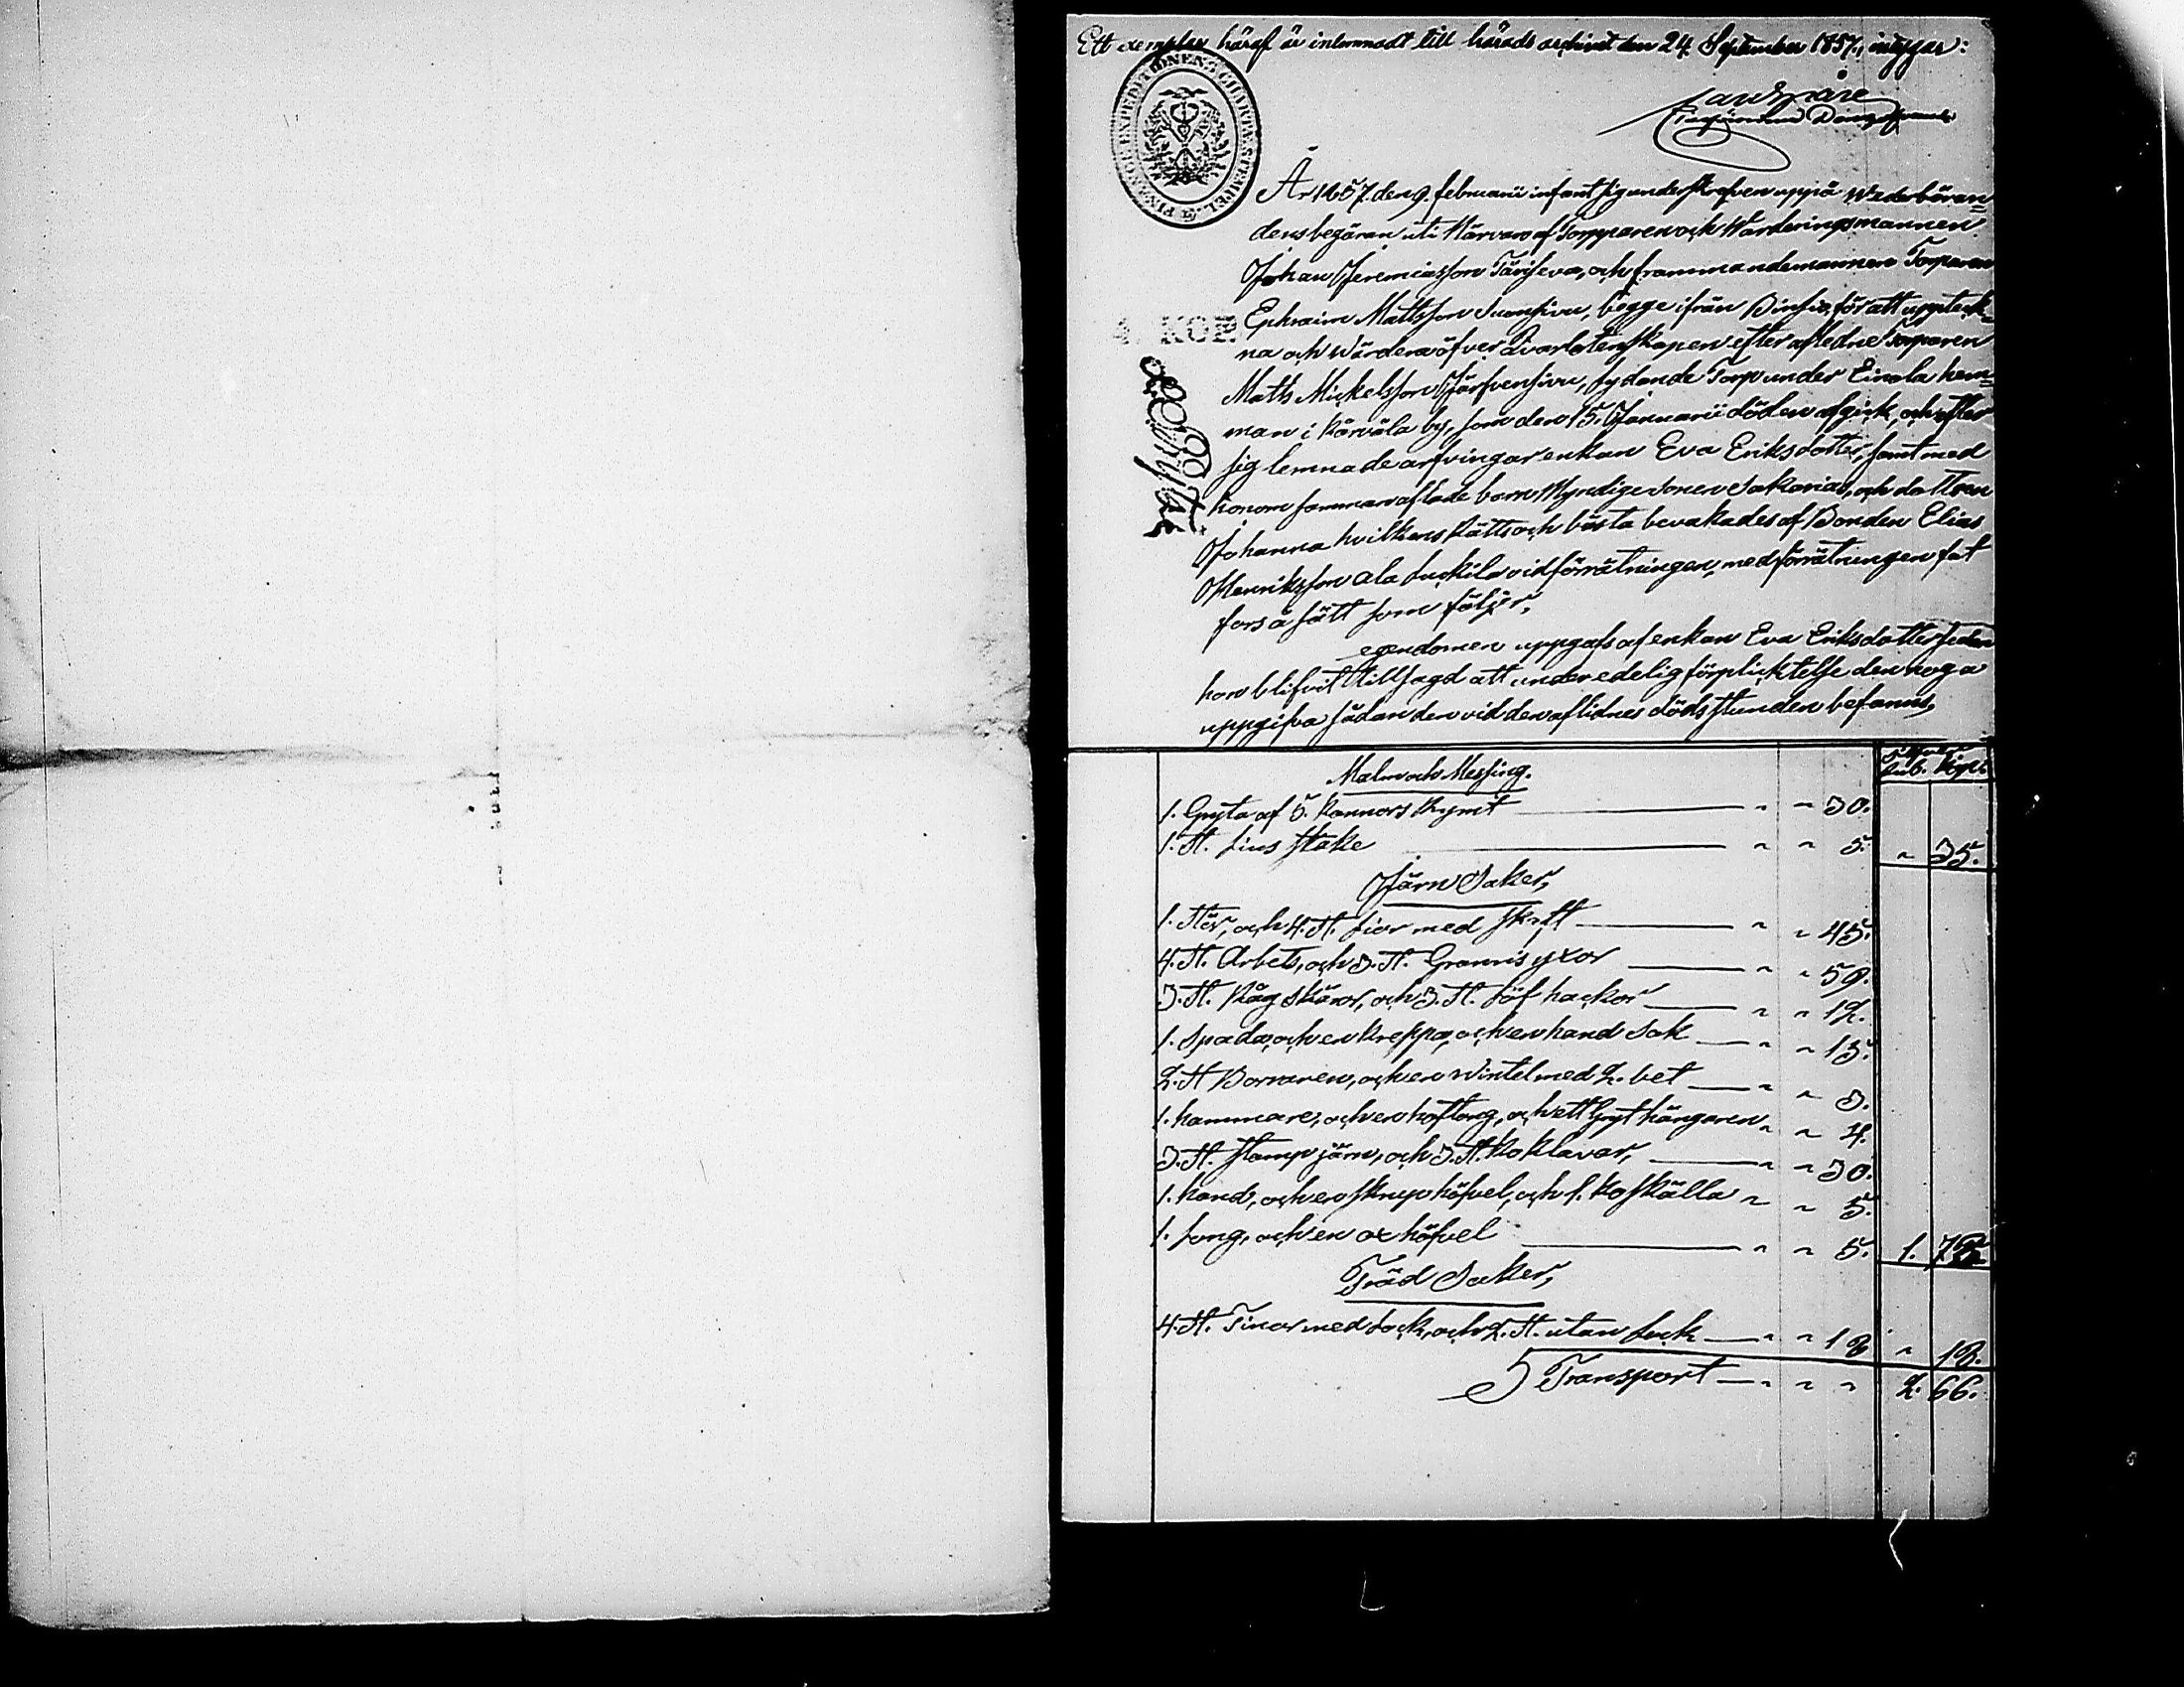 Ett exemplar häraf är inlemnadt till härads archivet den 24 September 1857, intygar:
FINANCE EXPEDITIONENS CHARTÆ STEMPEL
År 1857. den 9. februarii infant sig underskrefven uppå Wederböran=
dens begäran uti Närvaro af Torpparen och Wärderingsmannen
Johan Jeremiasson, och frammandemannen Torparen
Ephraim Mattsson, begge ifrån, för att uppteck=
na och Wärdera öfver Qvarlotenskapen efter afledne Torparen
Matts Mickelsson Järfvensivu, lydande Torp under Einola hem=
man i Kärväla by, som den 15. Januarii döden afgick, och efter
sig lemnade arfvingar enkan Eva Eriksdotter, samt med
honom samman aflade barn Myndige Sonen Sakarias, och dottren
Johanna hvilkens Rätt och bästa bevakades af Bonden Elias
Henriksson Ala vid förrätningen, med förrätningen fat
fors å sätt som följer,
egendomen uppgafs af enkan Eva Eriksdotter sedan
hon blifvit tillsagd att under edelig förplicktelse den noga
uppgifva sådan den vid den aflidnes dödsstunden befanns,
4. KOP
Silfver
Rub. Kop.
Malm och Messing.
1. Gryta af 5. Kannors Rymt " " 30.
1. St. Lius stake " " 5. " 35.
Järn Saker,
1. Stör, och 4. St. Liar med skaft " " 45.
4. St. Arbets, och 3. St. Granris yxor " " 59.
3. St. Råg Skäror, och 3. St. Löf hackor " " 12.
1. Spada, och en Kreppa, och en hand Sak " " 15.
2. St Borraren, och en Wintel med 2. bet " " 3.
1. hammare, och en hoftong, och ett Gryt hängaren " " 4.
3. St. Stamp järn, och 3. St. Koklavar, " " 30.
1. hand, och en skrup höfvel, och 1. Ko skälla " " 5.
1. Long, och en ox höfvel " " 5. 1.
Träd Saker,
4. St. Tinor med Lock, och 2. St. utan Lock " " 18 " 18.
Transport " " " 2. 66.